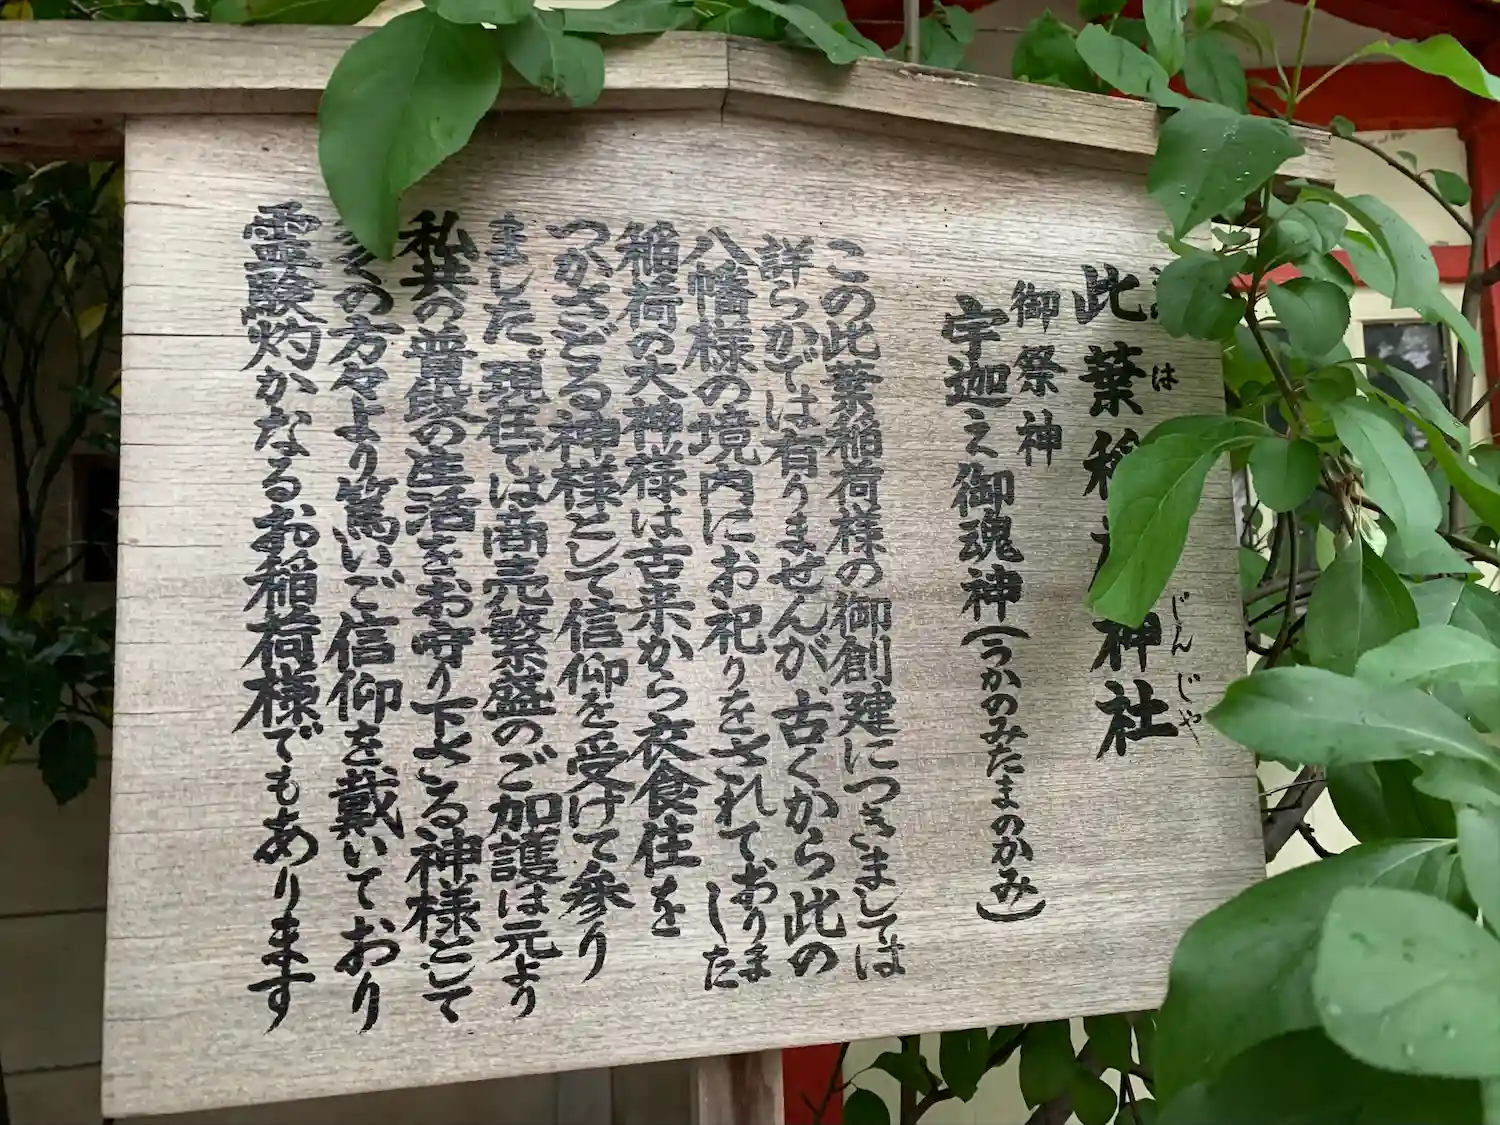 此葉稲荷神社
は
じんじゃ
御祭神
宇迦之御魂神(うかのみたまのかみ)
この此葉稲荷様の御創建につきましては
詳らかでは有りませんが、古くから此の
八幡様の境内にお祀りをされておりました
稲荷の大神様は古来から衣食住を
つかさどる神様として信仰を受けて参り
ました、現在では商売繁盛のご加護は元より
私共の普段の生活をお守り下さる神様として
多くの方々より篤いご信仰を戴いており
霊験灼かなるお稲荷様でもあります